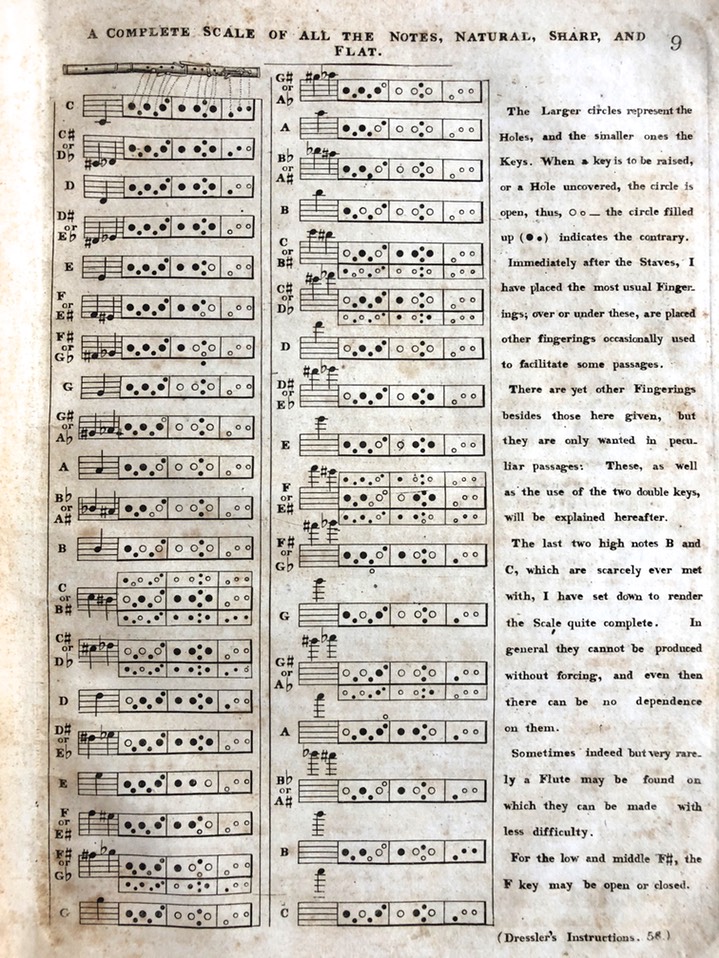 A COMPLETE SCALE OF ALL THE NOTES, NATURAL, SHARP, AND
FLAT.
9
C
C♯
or
D♭
D
D♯
or
E♭
E
F
or
E♯
F♯
or
G♭
G
G♯
or
A♭
A
B♭
or
A♯
B
C
or
B♯
C♯
or
D♭
D
D♯
or
E♭
E
F
or
E♯
F♯
or
G♭
G
G♯
or
A♭
A
B♭
or
A♯
B
C
or
B♯
C♯
or
D♭
D
D♯
or
E♭
E
F
or
E♯
F♯
or
G♭
G
G♯
or
A♭
A
B♭
or
A♯
B
C
The Larger circles represent the
Holes, and the smaller ones the
Keys. When a key is to be raised,
or a Hole uncovered, the circle is
open, thus, ○ o — the circle filled
up (● •) indicates the contrary.
Immediately after the Staves, I
have placed the most usual Finger-
ings; over or under these, are placed
other fingerings occasionally used
to facilitate some passages.
There are yet other Fingerings
besides those here given, but
they are only wanted in pecu-
liar passages: These, as well
as the use of the two double keys,
will be explained hereafter.
The last two high notes B and
C, which are scarcely ever met
with, I have set down to render
the Scale quite complete. In
general they cannot be produced
without forcing, and even then
there can be no dependence
on them.
Sometimes indeed but very rare-
ly a Flute may be found on
which they can be made with
less difficulty.
For the low and middle F♯, the
F key may be open or closed.
(Dressler's Instructions. 58.)